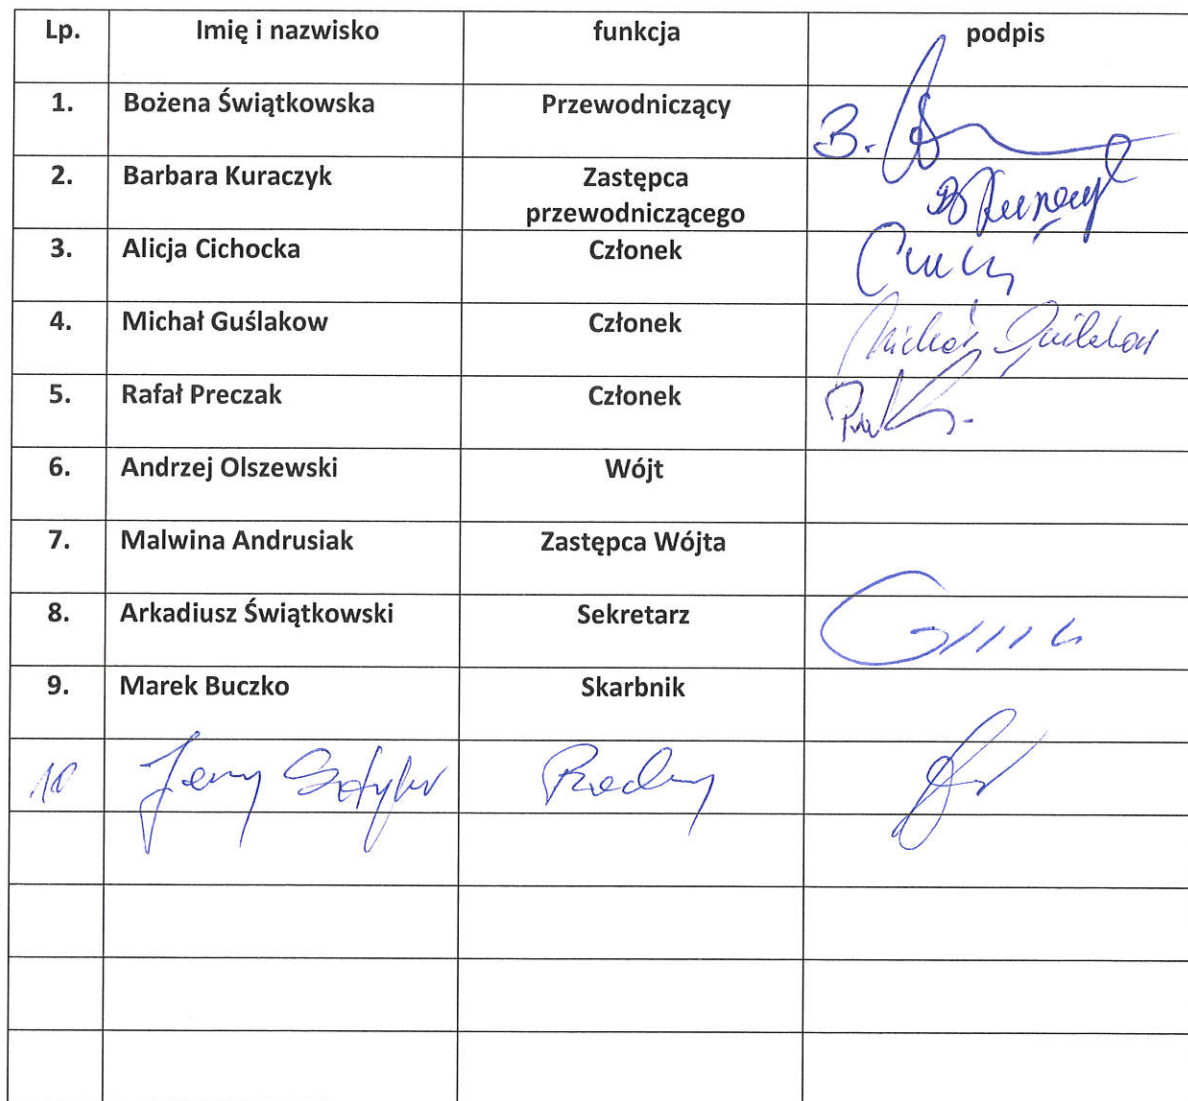 Lp. Imię i nazwisko funkcja podpis
1. Bożena Świątkowska Przewodniczący B.
2. Barbara Kuraczyk Zastępca
przewodniczącego
3. Alicja Cichocka Członek
4. Michał Guślakow Członek Michał Guślakow
5. Rafał Preczak Członek
6. Andrzej Olszewski Wójt
7. Malwina Andrusiak Zastępca Wójta
8. Arkadiusz Świątkowski Sekretarz
9. Marek Buczko Skarbnik
10 Jerzy Radny